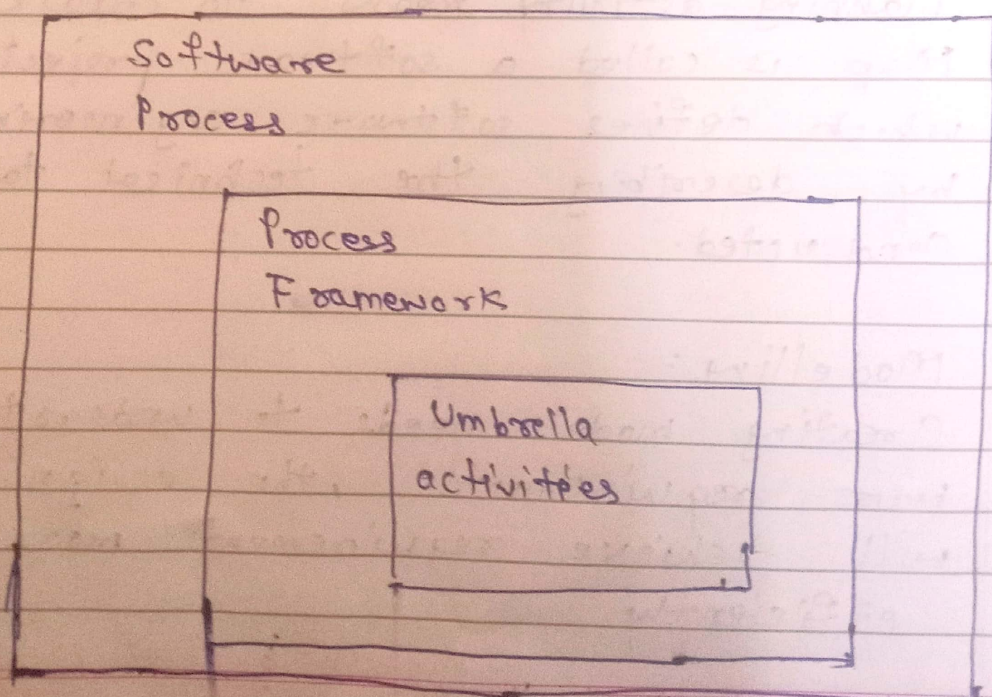 Software
Process
Process
Framework
Umbrella
activities